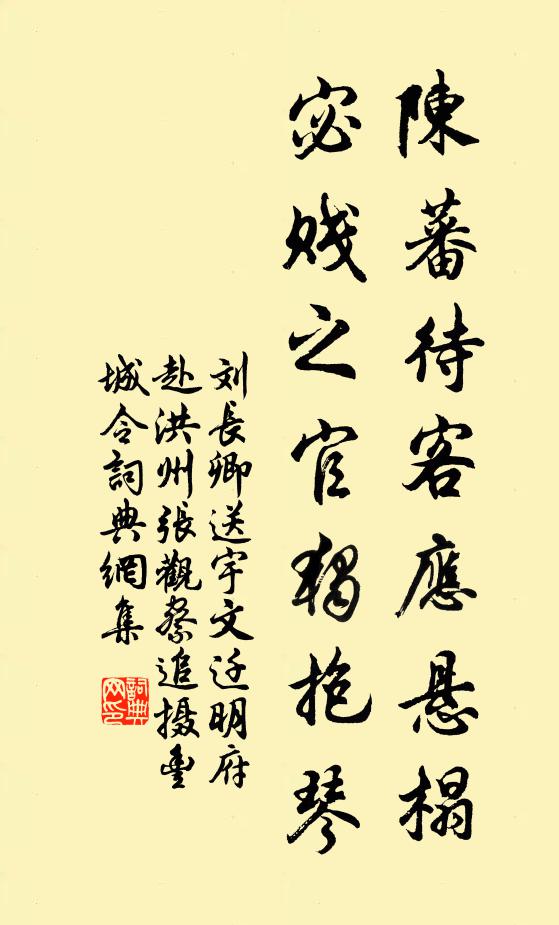 陳蕃待客應悬榻
宓賤之官独抱琴
刘長卿送宇文迁明府
赴洪州張觀察追摄豐
城令詞典網集
詞典网印